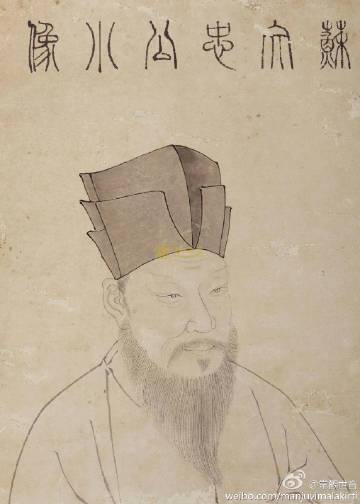 蘇文忠公小像
weibo.com/manjuvimalakirti